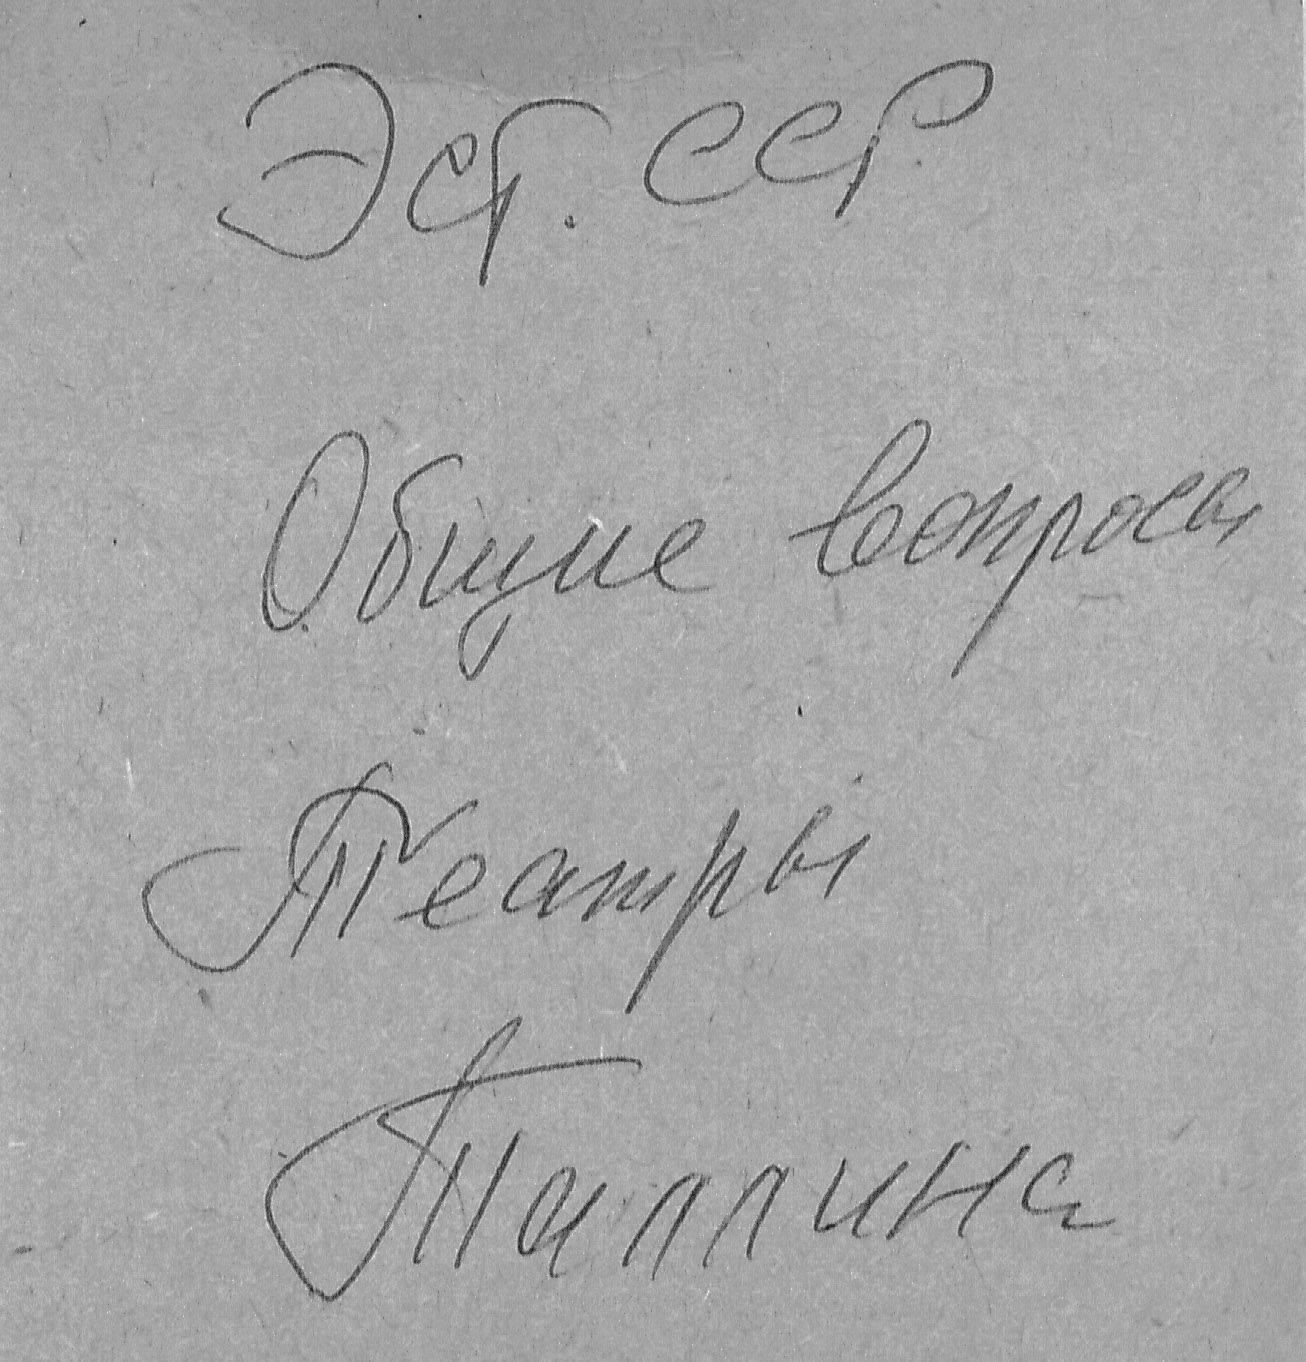 Эст. ССР
Общие вопросы
Театры
Таллина